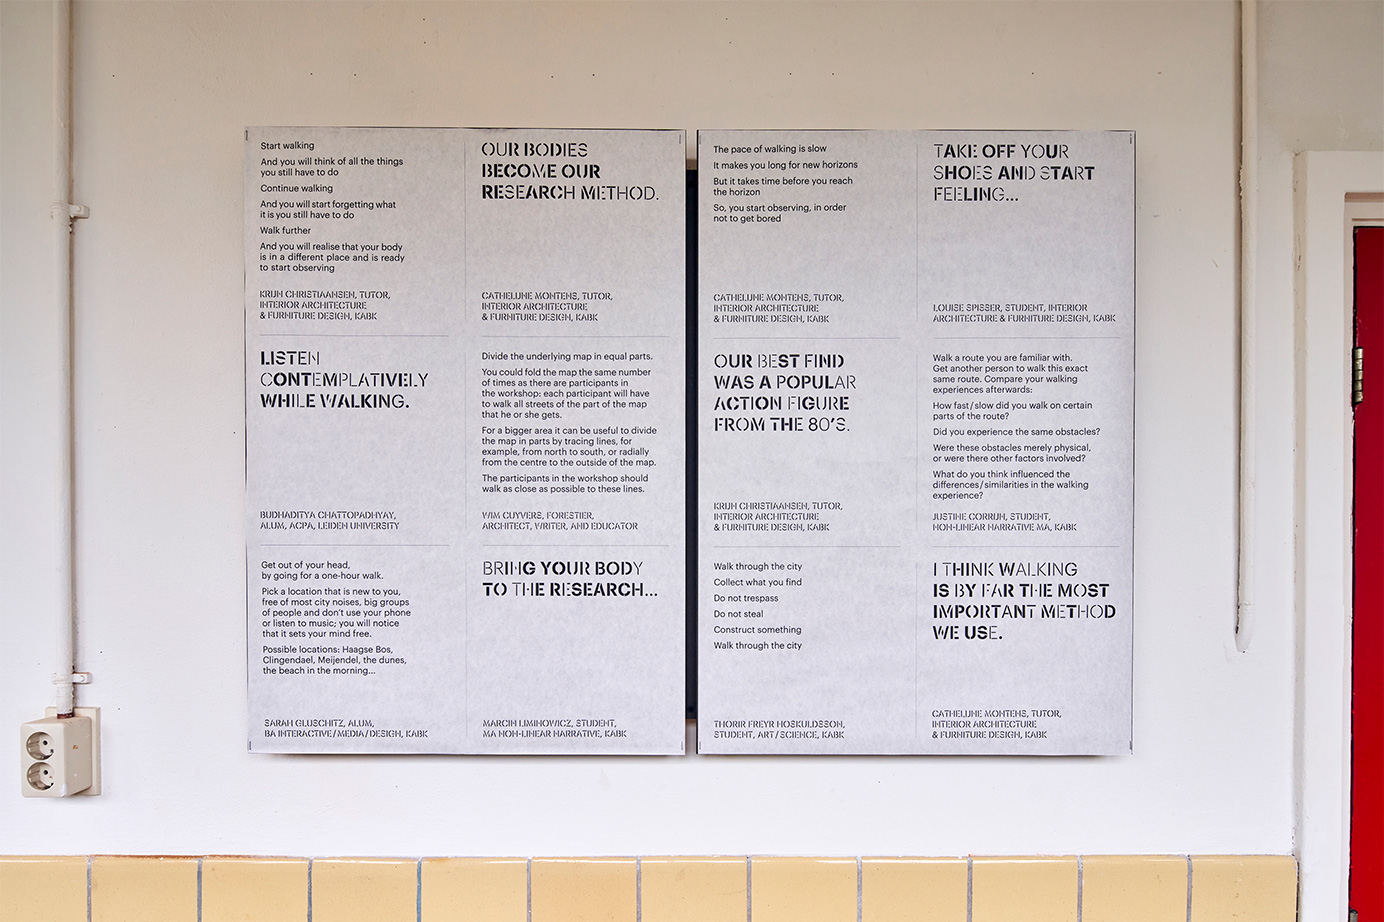 Start walking
And you will think of all the things
you still have to do
Continue walking
And you will start forgetting what
it is you still have to do
Walk further
And you will realise that your body
is in a different place and is ready
to start observing
KRIJN CHRISTIAANSEN, TUTOR,
INTERIOR ARCHITECTURE
& FURNITURE DESIGN, KABK
OUR BODIES
BECOME OUR
RESEARCH METHOD.
CATHELIJNE MONTENS, TUTOR,
INTERIOR ARCHITECTURE
& FURNITURE DESIGN, KABK
LISTEN
CONTEMPLATIVELY
WHILE WALKING.
BUDHADITYA CHATTOPADHYAY,
ALUM, ACPA, LEIDEN UNIVERSITY
Divide the underlying map in equal parts.
You could fold the map the same number
of times as there are participants in
the workshop: each participant will have
to walk all streets of the part of the map
that he or she gets.
For a bigger area it can be useful to divide
the map in parts by tracing lines, for
example, from north to south, or radially
from the centre to the outside of the map.
The participants in the workshop should
walk as close as possible to these lines.
WIM CUYVERS, FORESTIER,
ARCHITECT, WRITER, AND EDUCATOR
Get out of your head,
by going for a one-hour walk.
Pick a location that is new to you,
free of most city noises, big groups
of people and don't use your phone
or listen to music; you will notice
that it sets your mind free.
Possible locations: Haagse Bos,
Clingendael, Meijendel, the dunes,
the beach in the morning...
SARAH GLUSCHITZ, ALUM,
BA INTERACTIVE/MEDIA/DESIGN, KABK
BRING YOUR BODY
TO THE RESEARCH...
MARCIN LIMINOWICZ, STUDENT,
MA NON-LINEAR NARRATIVE, KABK
The pace of walking is slow
It makes you long for new horizons
But it takes time before you reach
the horizon
So, you start observing, in order
not to get bored
CATHELIJNE MONTENS, TUTOR,
INTERIOR ARCHITECTURE
& FURNITURE DESIGN, KABK
TAKE OFF YOUR
SHOES AND START
FEELING...
LOUISE SPISSER, STUDENT, INTERIOR
ARCHITECTURE & FURNITURE DESIGN, KABK
OUR BEST FIND
WAS A POPULAR
ACTION FIGURE
FROM THE 80'S.
KRIJN CHRISTIAANSEN, TUTOR,
INTERIOR ARCHITECTURE
& FURNITURE DESIGN, KABK
Walk a route you are familiar with.
Get another person to walk this exact
same route. Compare your walking
experiences afterwards:
How fast/slow did you walk on certain
parts of the route?
Did you experience the same obstacles?
Were these obstacles merely physical,
or were there other factors involved?
What do you think influenced the
differences/similarities in the walking
experience?
JUSTINE CORRIJN, STUDENT,
NON-LINEAR NARRATIVE MA, KABK
Walk through the city
Collect what you find
Do not trespass
Do not steal
Construct something
Walk through the city
THORIR FREYR HOSKULDSSON,
STUDENT, ART/SCIENCE, KABK
I THINK WALKING
IS BY FAR THE MOST
IMPORTANT METHOD
WE USE.
CATHELIJNE MONTENS, TUTOR,
INTERIOR ARCHITECTURE
& FURNITURE DESIGN, KABK